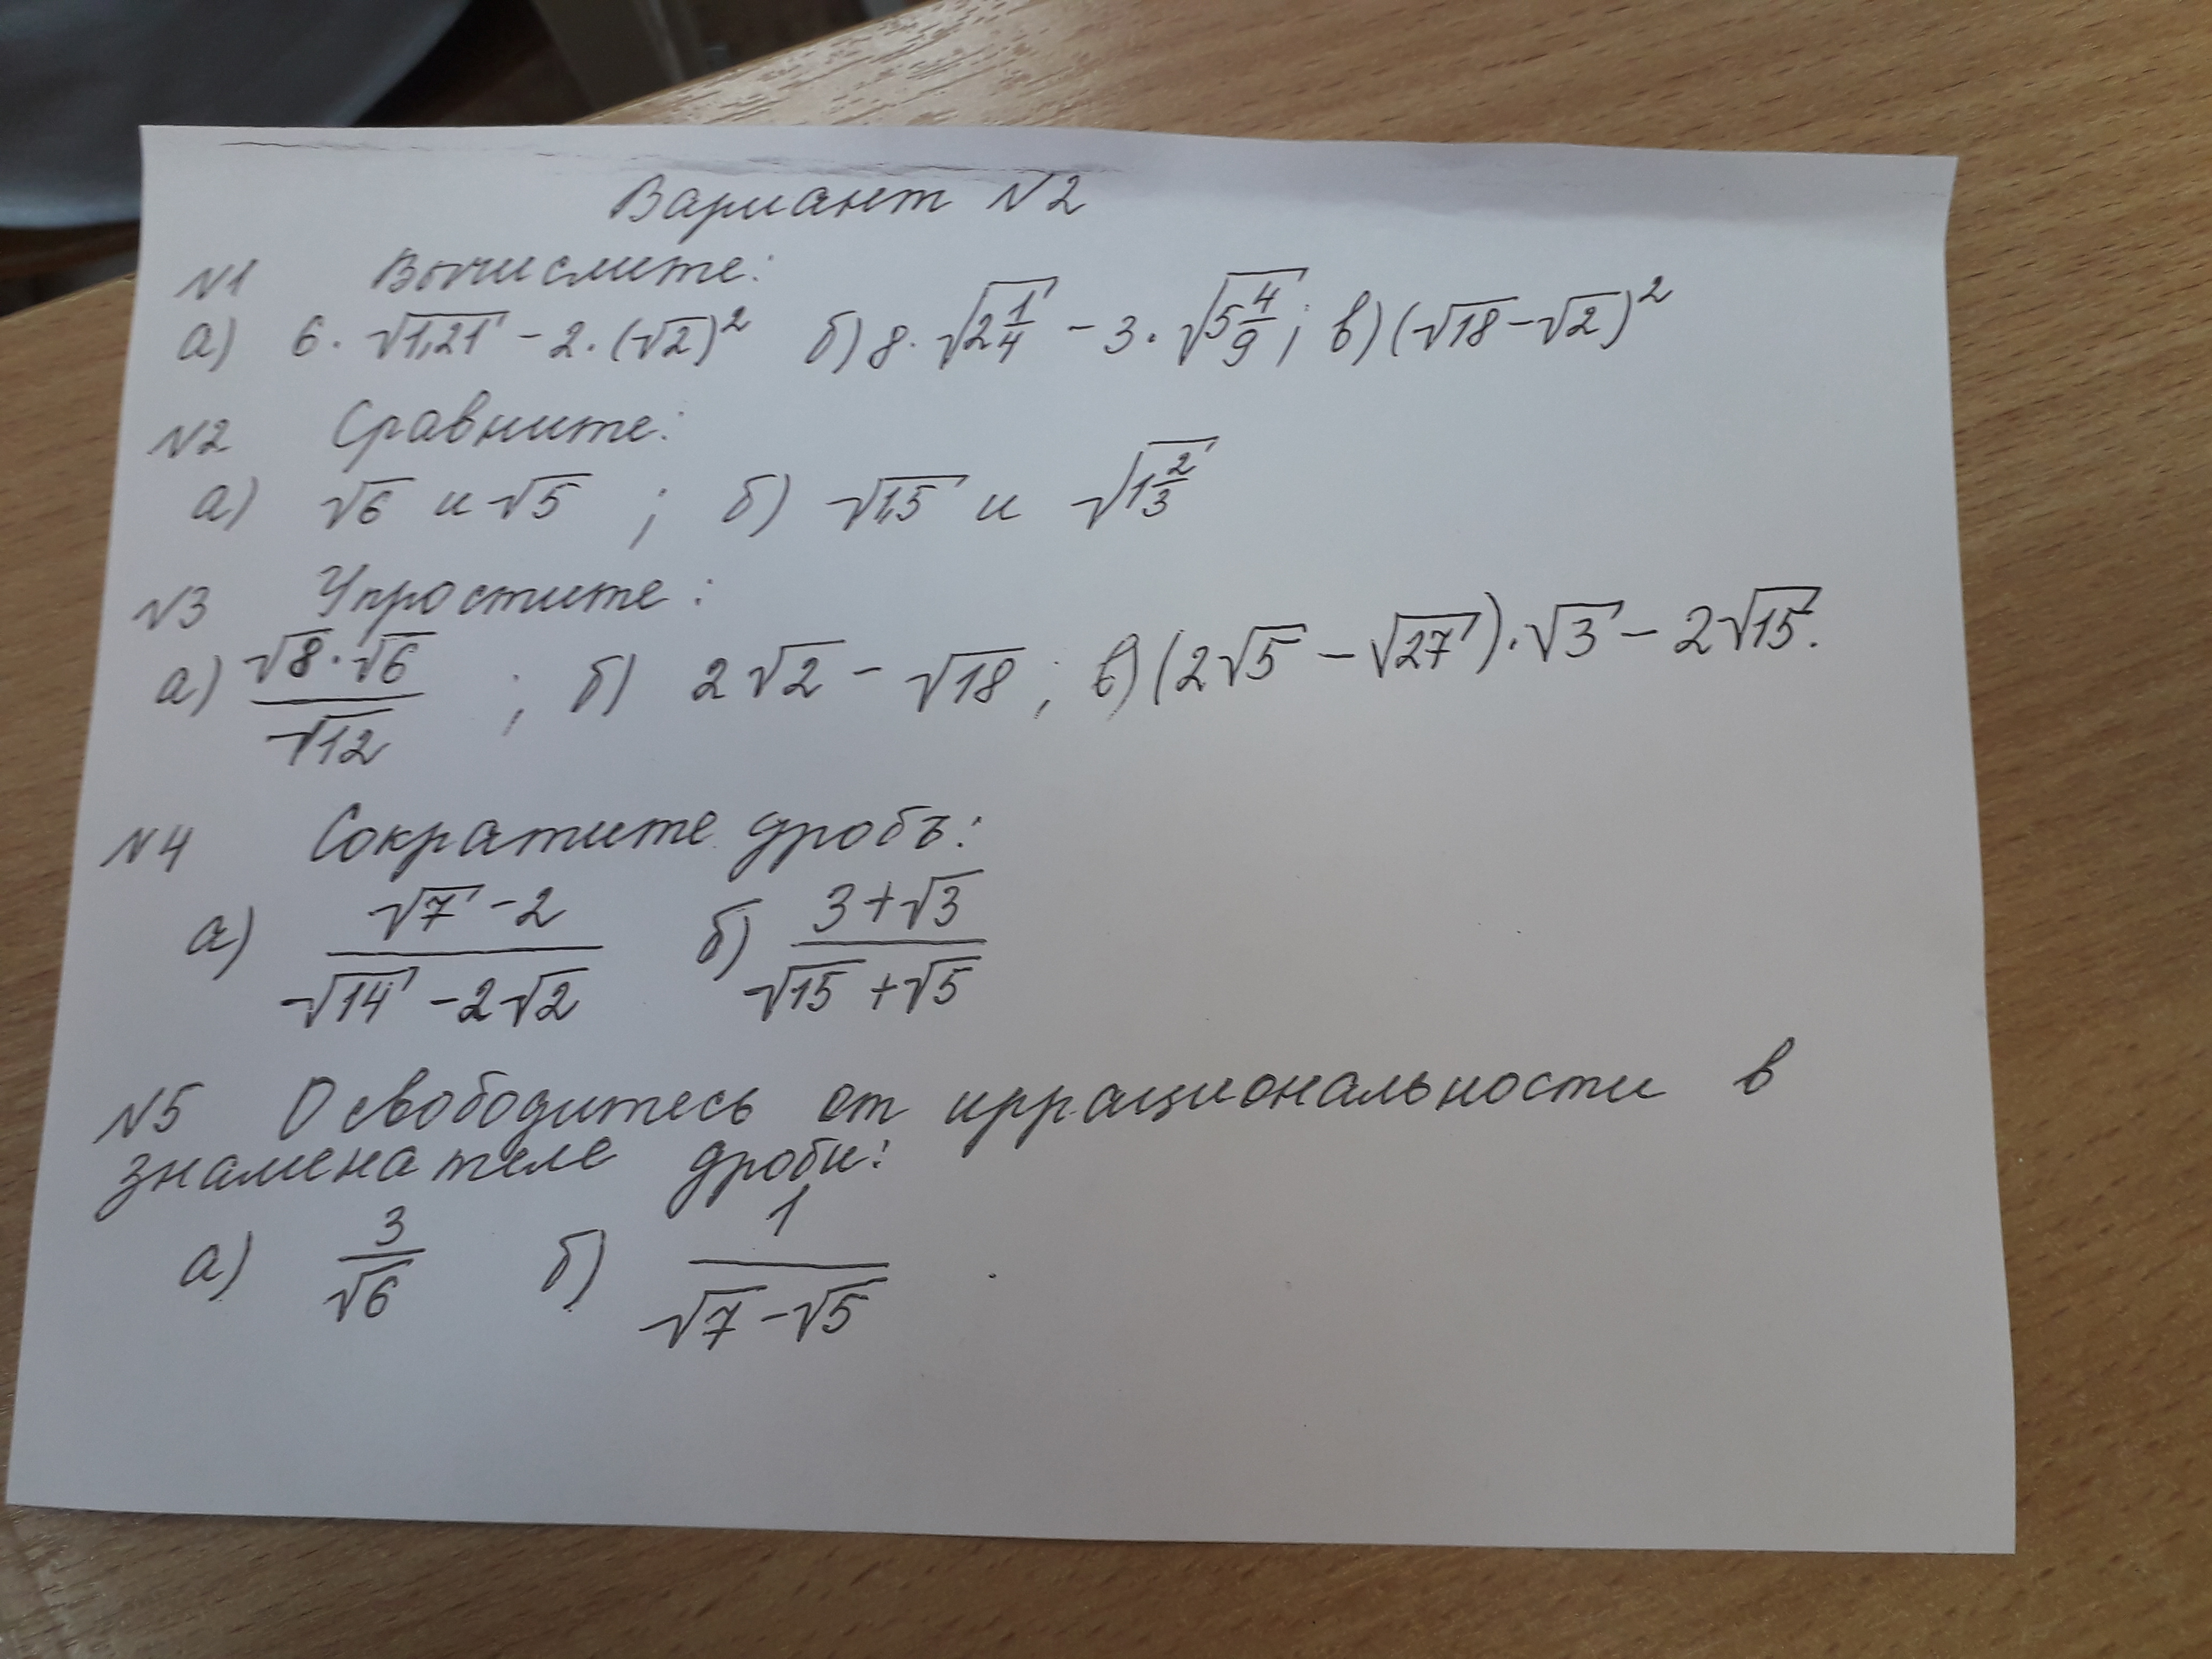 Вариант N2
N1 Вычислите:
а) 6 · √1,21 − 2 · (√2)² б) 8 · √(2 1/4) − 3 · √(5 4/9); в) (√18 − √2)²
N2 Сравните:
а) √6 и √5 ; б) √1,5 и √(1 2/3)
N3 Упростите:
а) (√8 · √6)/√12 ; б) 2√2 − √18; в) (2√5 − √27) · √3 − 2√15.
N4 Сократите дробь:
а) (√7 − 2)/(√14 − 2√2) б) (3 + √3)/(√15 + √5)
N5 Освободитесь от иррациональности в
знаменателе дроби:
а) 3/√6 б) 1/(√7 − √5)